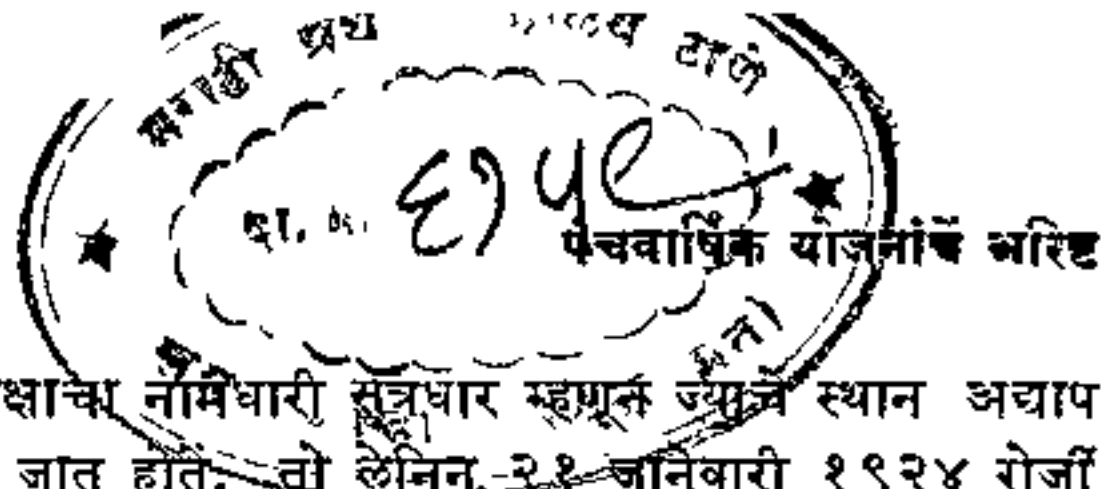 मराठी ग्रंथ ठाणे
दा.
पंचवार्षिक योजनांचें अरिष्ट
क्षाचा नामधारी सूत्रधार म्हणून ज्याचें स्थान अद्याप
जात होतें. तो लेनिन २१ जानेवारी १९२४ रोजीं